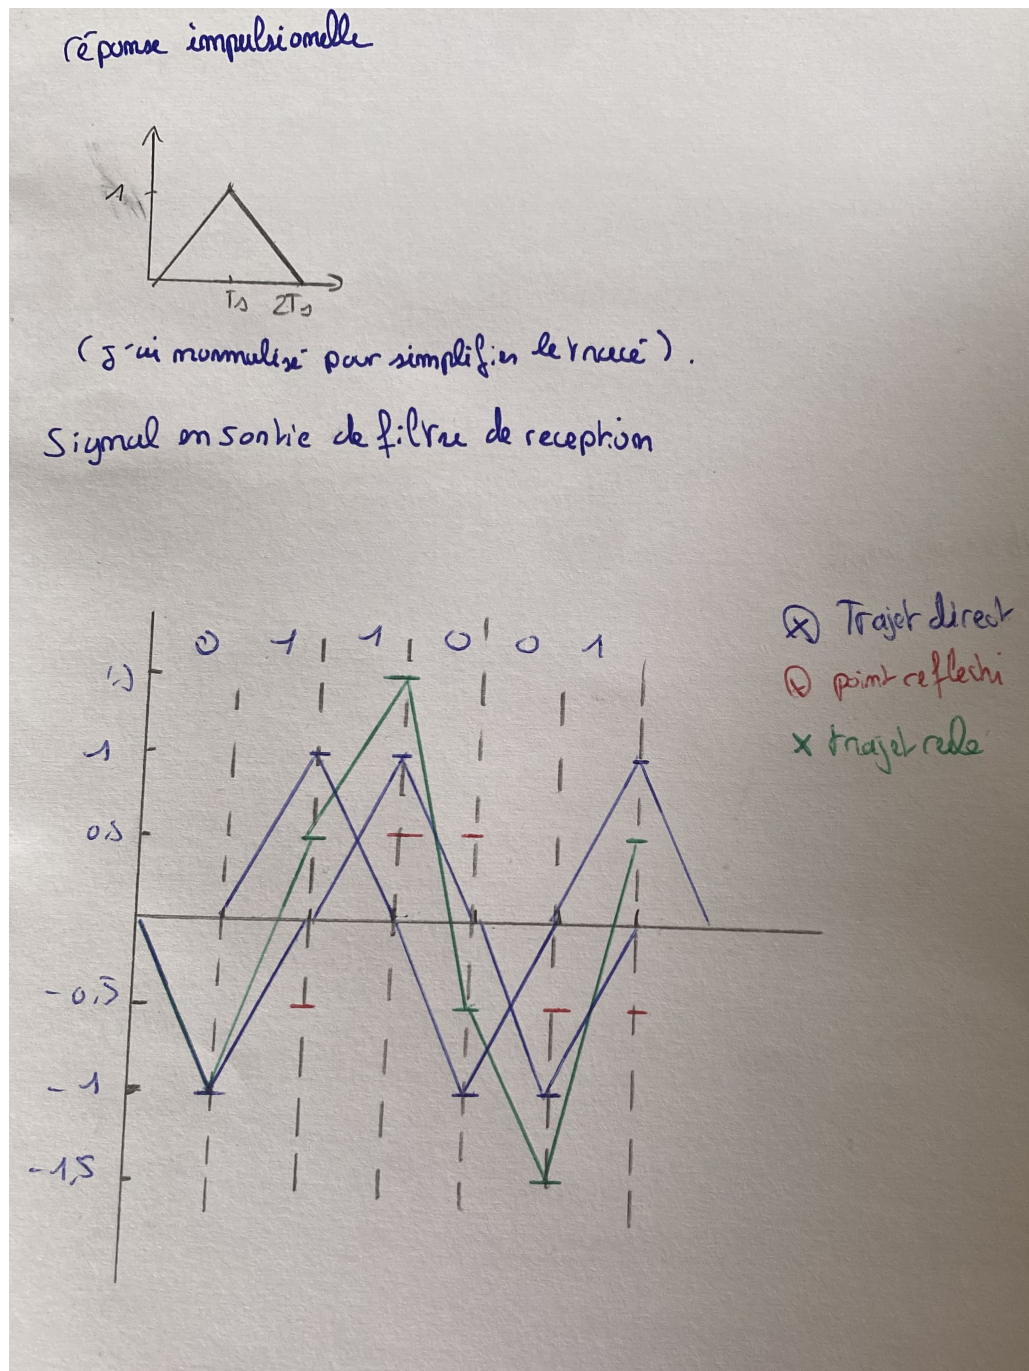 réponse impulsionelle
1
Ts 2Ts
(j'ai normalisé pour simplifier le tracé).
Signal en sortie de filtre de reception
0 1 1 0 0 1
1
0,5
-0,5
-1
-1,5
Trajet direct
point reflechi
trajet réele